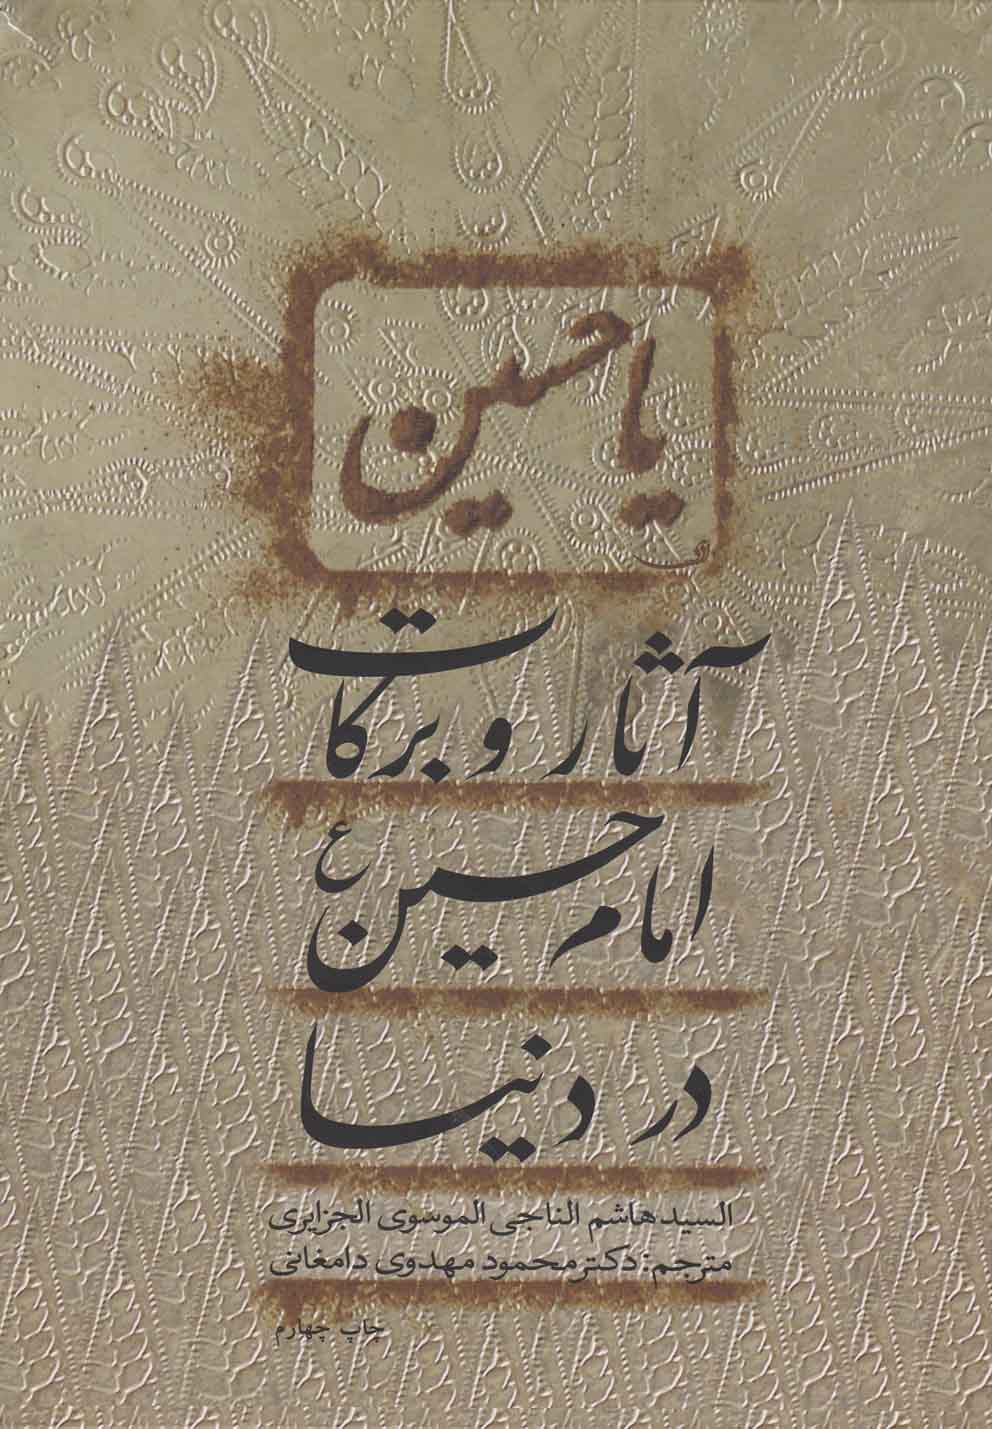 یا حسین
آثار و برکات
امام حسین ع
در دنیا
السید هاشم الناجی الموسوی الجزایری
مترجم: دکتر محمود مهدوی دامغانی
چاپ چهارم